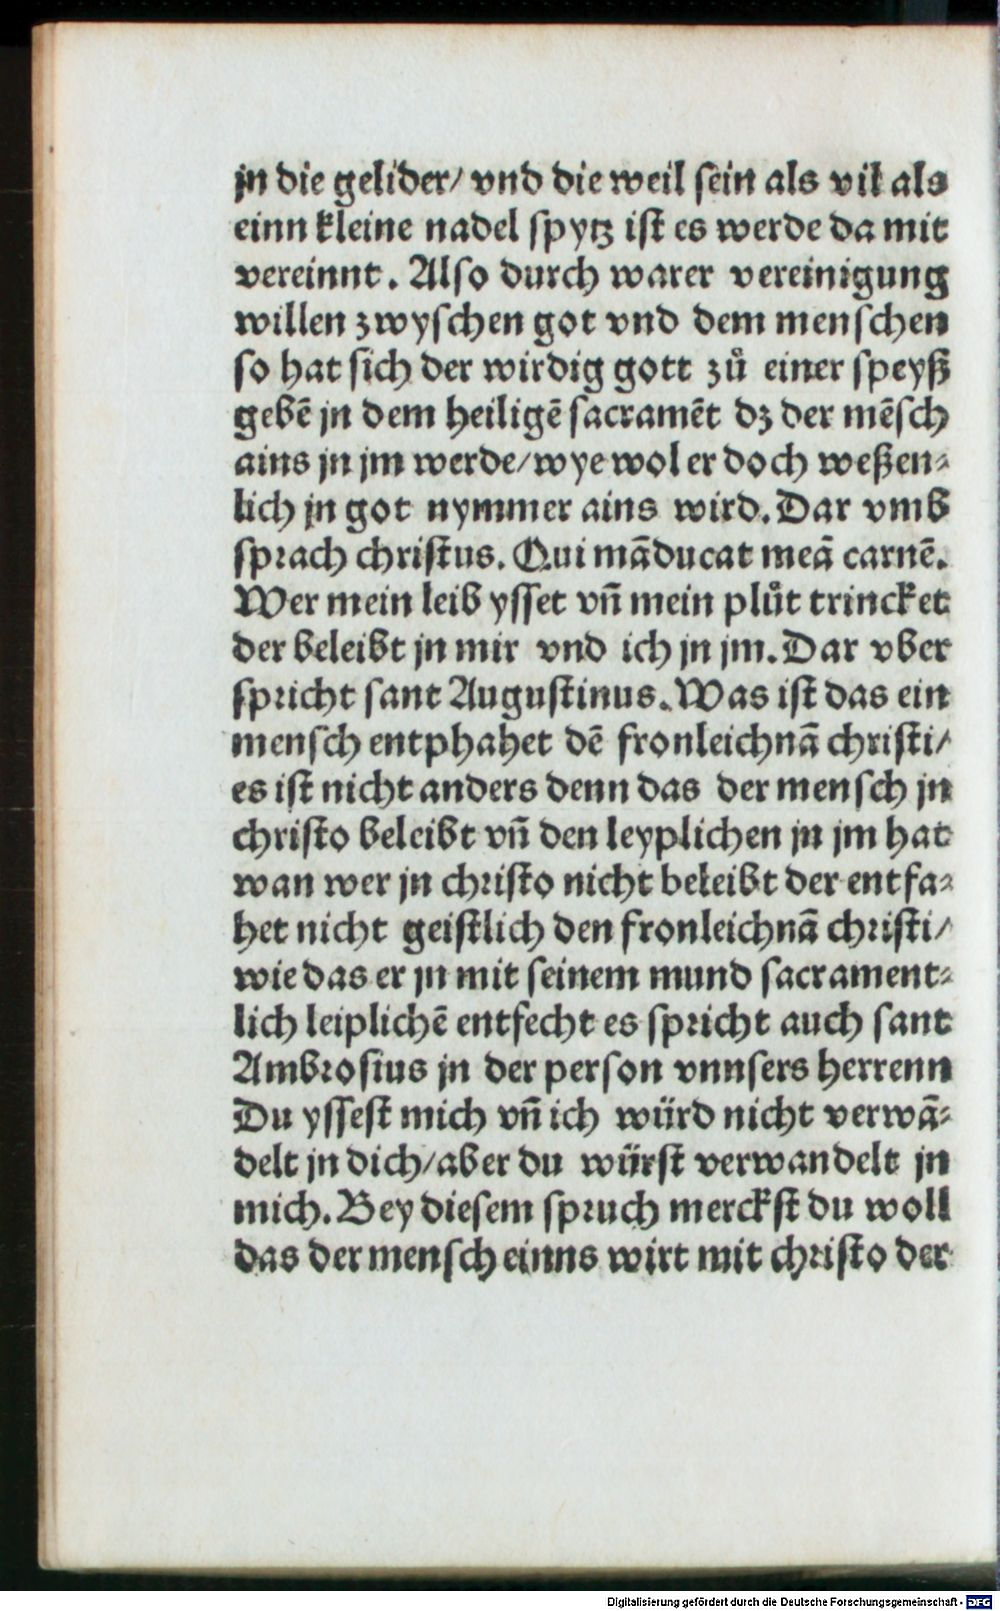 jn die gelider/ vnd die weil sein als vil als
einn kleine nadel spytz ist es werde da mit
vereinnt. Also durch warer vereinigung
willen zwyschen got vnd dem menschen
so hat sich der wirdig gott zů einer speyß
gebē jn dem heiligē sacramēt dz der mēsch
ains jn jm werde/wye wol er doch weßen⸗
lich jn got nymmer ains wird. Dar vmb
sprach christus. Qui māducat meā carnē.
Wer mein leib ysset vñ mein plůt trincket
der beleibt jn mir vnd ich jn jm. Dar vber
spricht sant Augustinus. Was ist das ein
mensch entphahet dē fronleichnā christi/
es ist nicht anders denn das der mensch jn
christo beleibt vñ den leyplichen jn jm hat
wan wer jn christo nicht beleibt der entfa⸗
het nicht geistlich den fronleichnā christi/
wie das er jn mit seinem mund sacrament⸗
lich leiplichē entfecht es spricht auch sant
Ambrosius jn der person vnnsers herrenn
Du yssest mich vñ ich würd nicht verwā⸗
delt jn dich/aber du würst verwandelt jn
mich. Bey diesem spruch merckst du woll
das der mensch einns wirt mit christo der
Digitalisierung gefördert durch die Deutsche Forschungsgemeinschaft - DFG